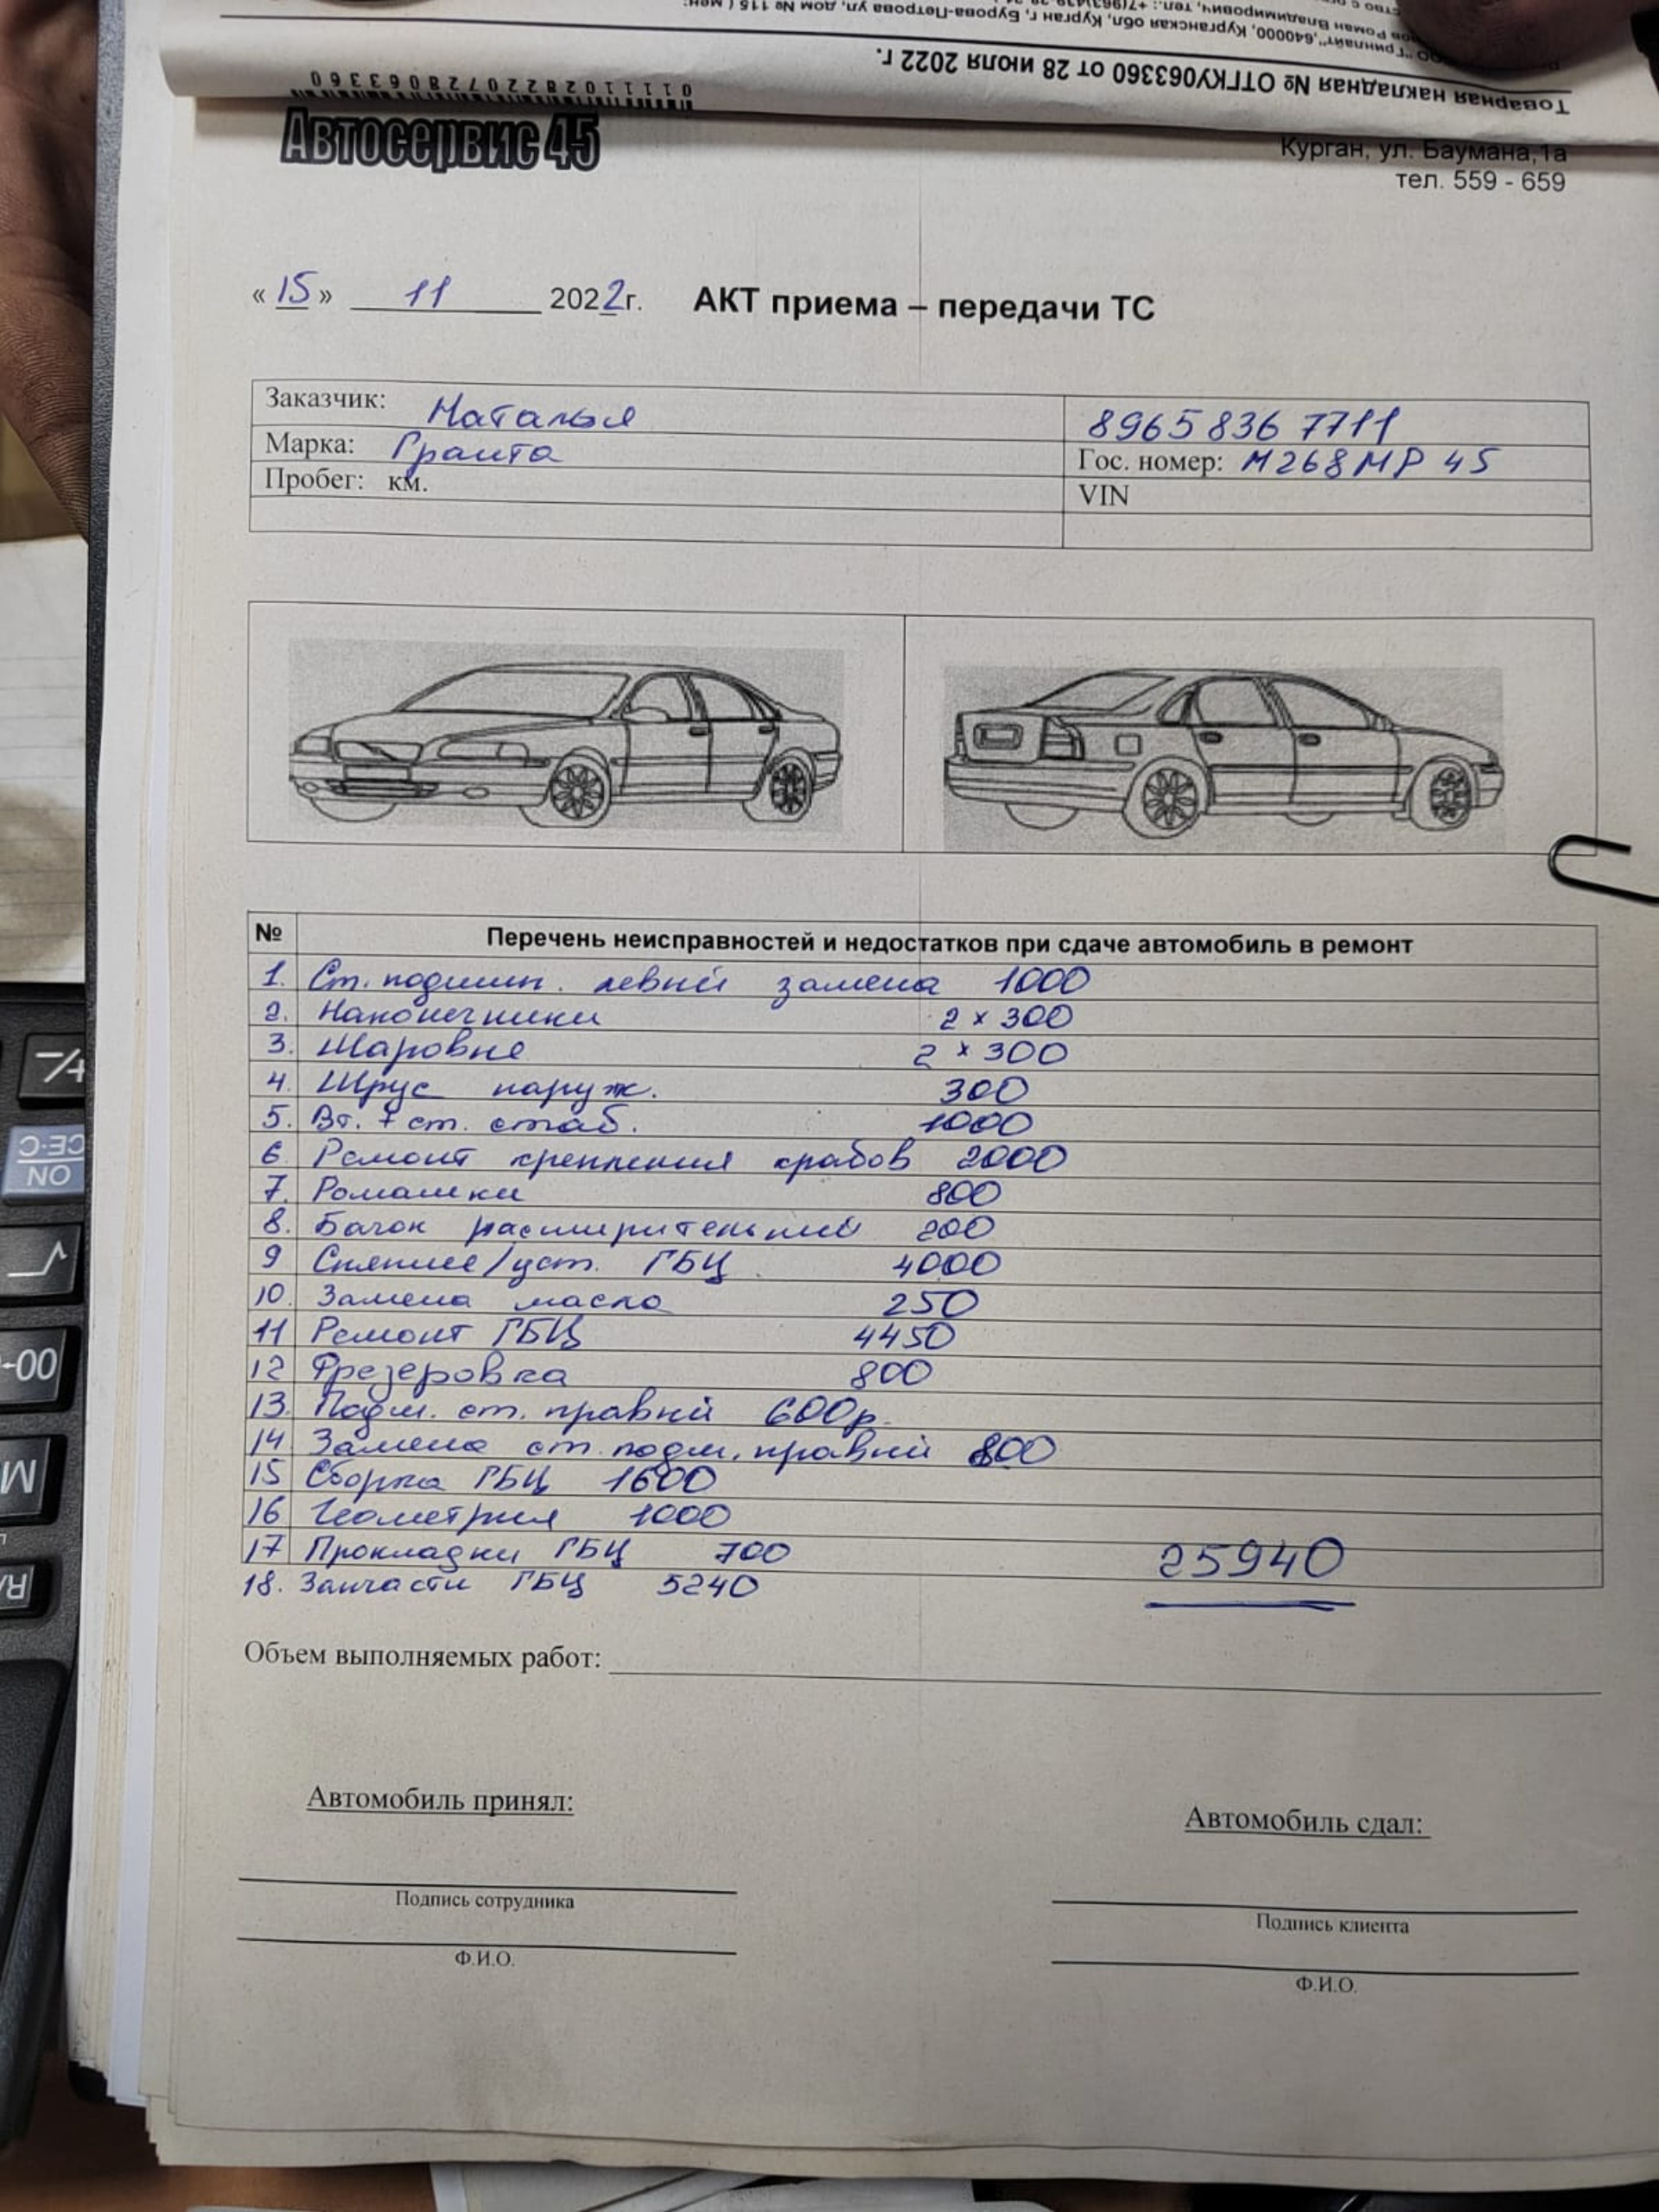 ство с о
ов Роман Владимирович, тел.: +7(963)439-28-
"Гринлайт",640000, Курганская обл, Курган г, Бурова-Петрова ул, дом № 115 ( мен:
Товарная накладная № ОТГКУ063360 от 28 июля 2022 г.
01111028220728063360
Автосервис 45
Курган, ул. Баумана,1а
тел. 559 - 659
« 15 » 11 2022г. АКТ приема – передачи ТС
Заказчик: Наталья 8965 836 7711
Марка: Гранта Гос. номер: М268МР 45
Пробег: км. VIN
№ Перечень неисправностей и недостатков при сдаче автомобиль в ремонт
1. Ст. подшип. левый замена 1000
2. Наконечники 2 x 300
3. Шаровые 2 x 300
4. Шрус наруж. 300
5. Вт. + ст. стаб. 1000
6 Ремонт крепления крабов 2000
7. Ромашки 800
8. Бачок расширительный 200
9 Снятие/уст. ГБЦ 4000
10. Замена масла 250
11 Ремонт ГБЦ 4450
12 Фрезеровка 800
13. Подш. ст. правый 600р.
14 Замена ст. подш. правый 800
15 Сборка ГБЦ 1600
16 Геометрия 1000
17 Прокладки ГБЦ 700 25940
18. Запчасти ГБЦ 5240
Объем выполняемых работ:
Автомобиль принял:
Автомобиль сдал:
Подпись сотрудника
Подпись клиента
Ф.И.О.
Ф.И.О.
CE·C
ON
00
M
R